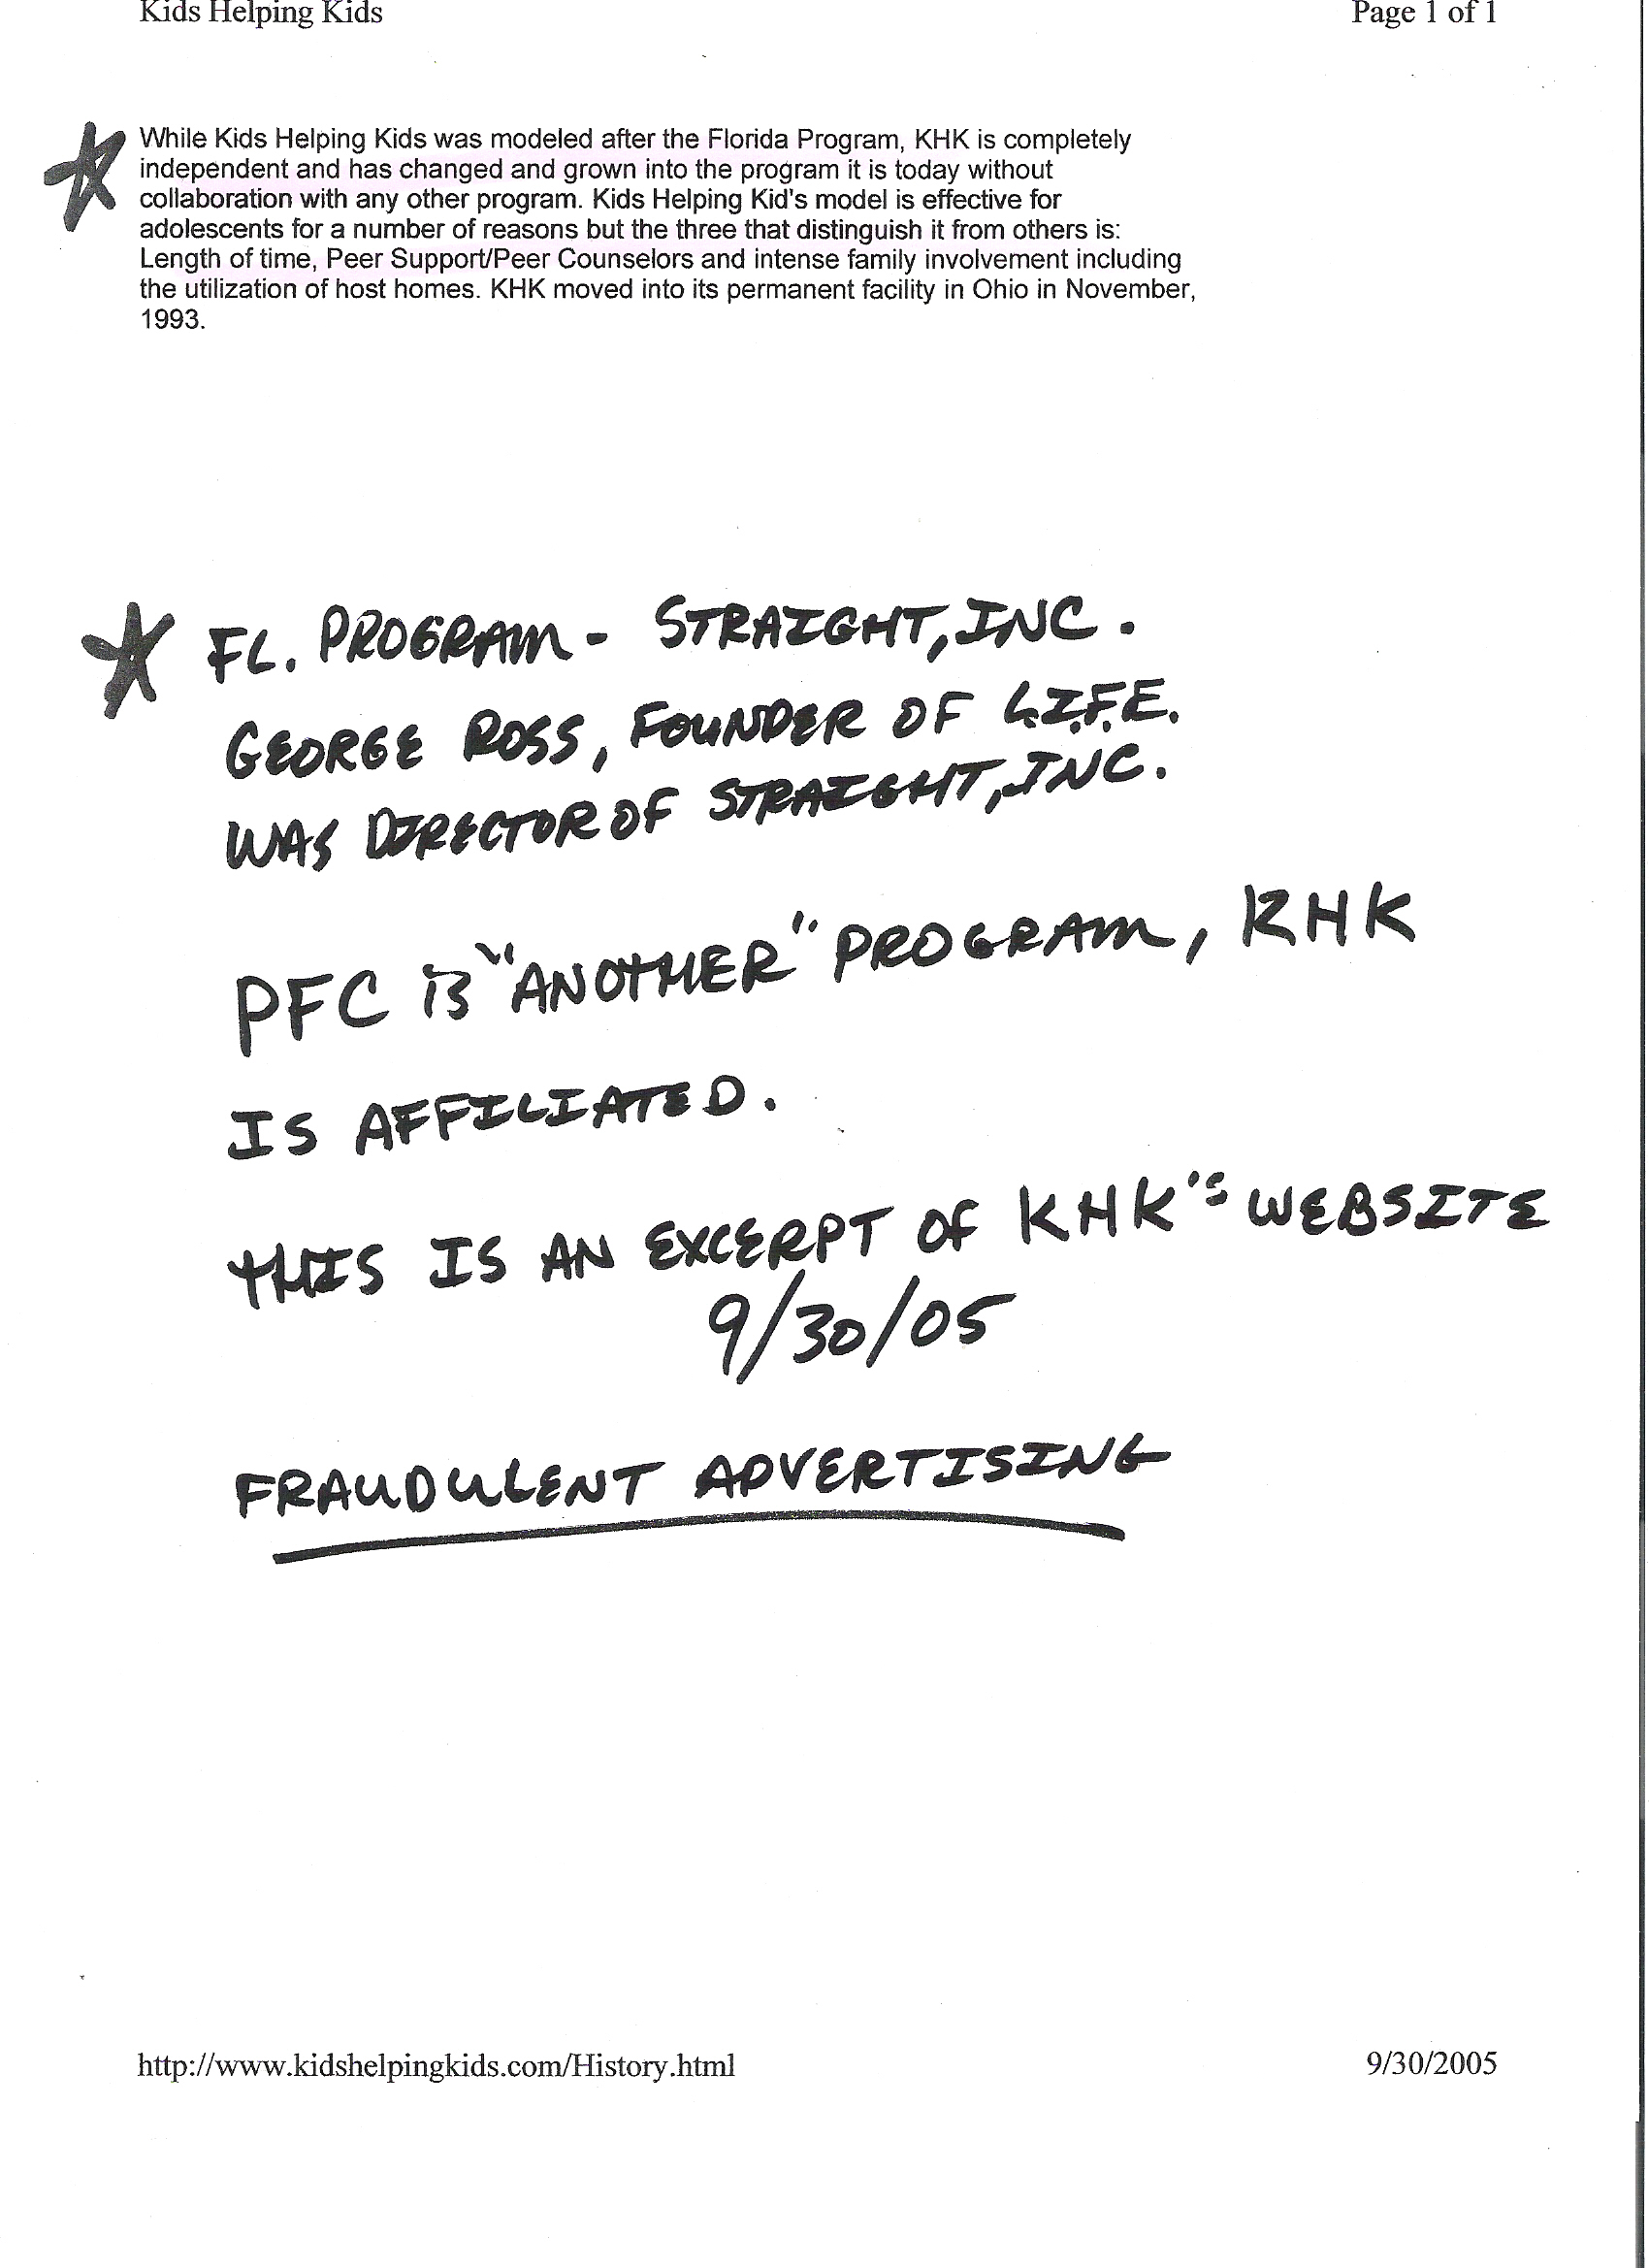 Kids Helping Kids
Page 1 of 1
While Kids Helping Kids was modeled after the Florida Program, KHK is completely
independent and has changed and grown into the program it is today without
collaboration with any other program. Kids Helping Kid's model is effective for
adolescents for a number of reasons but the three that distinguish it from others is:
Length of time, Peer Support/Peer Counselors and intense family involvement including
the utilization of host homes. KHK moved into its permanent facility in Ohio in November,
1993.
FL. PROGRAM - STRAIGHT, INC.
GEORGE ROSS, FOUNDER OF L.I.F.E.
WAS DIRECTOR OF STRAIGHT, INC.
PFC is "ANOTHER" PROGRAM, KHK
IS AFFILIATED.
THIS IS AN EXCERPT OF KHK's WEBSITE
9/30/05
FRAUDULENT ADVERTISING
http://www.kidshelpingkids.com/History.html
9/30/2005